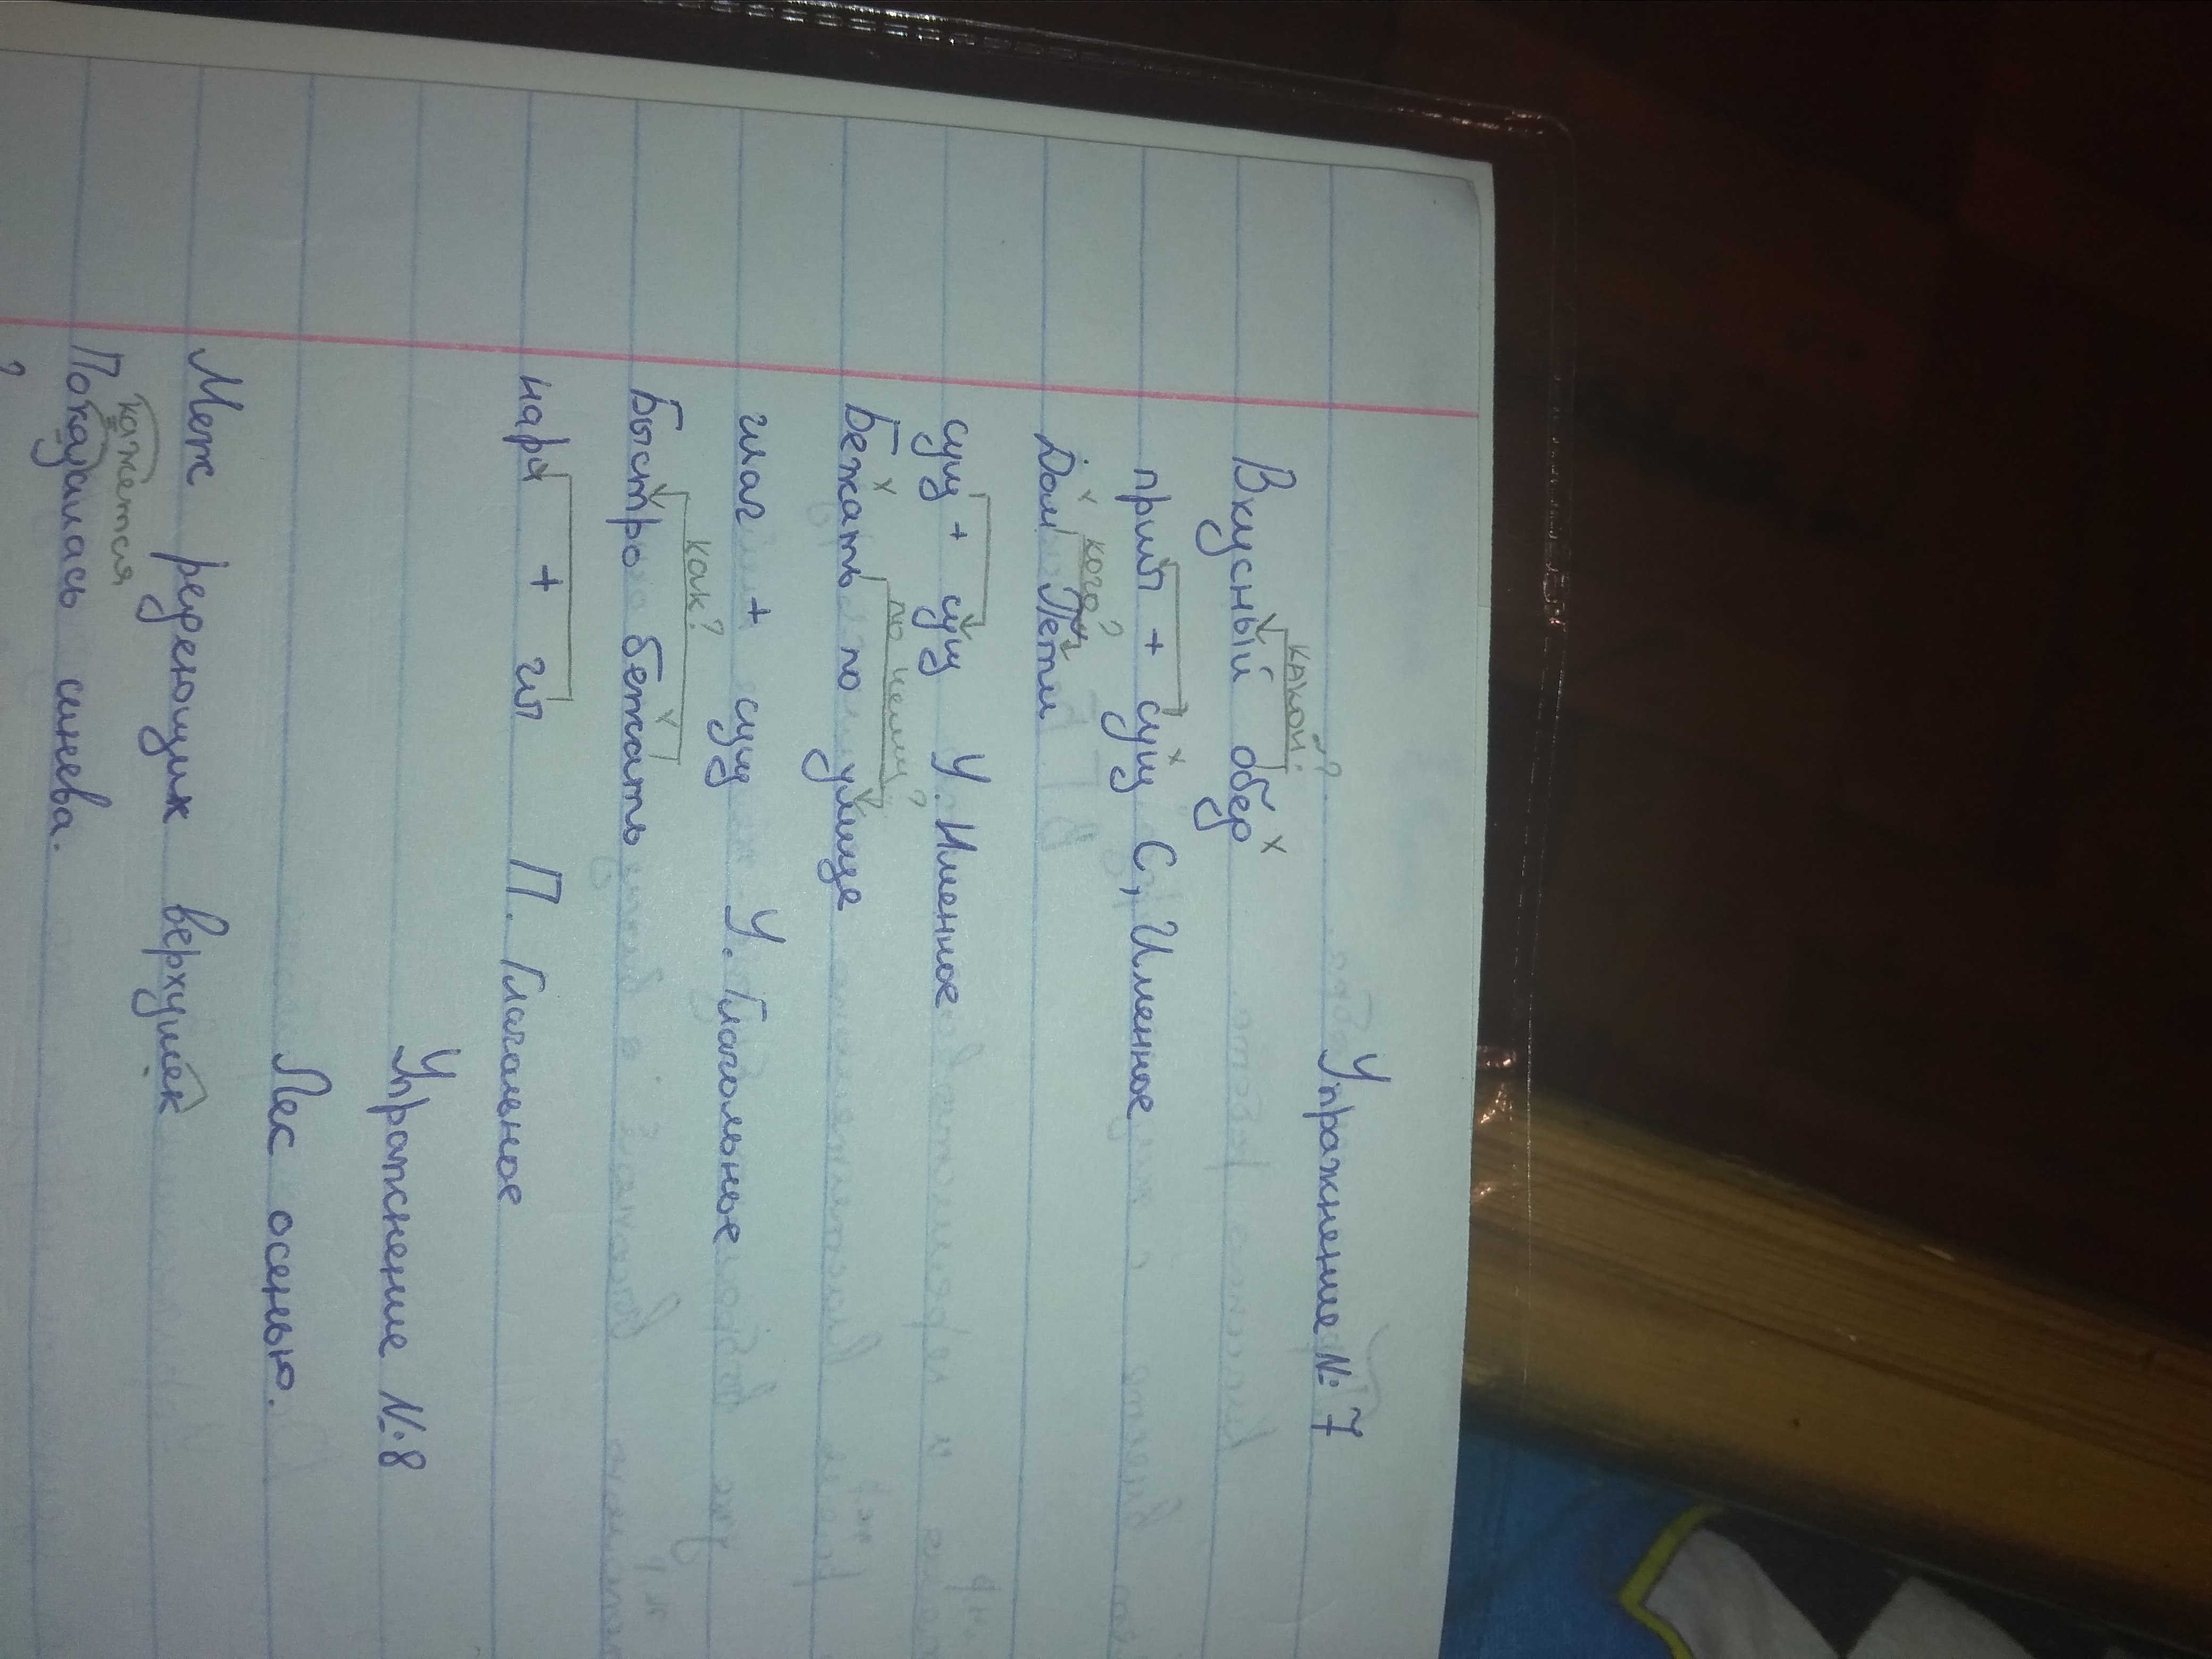 Упражнение № 7
какой?
х
Вкусный обер
х
прил + сущ С, Именное
х кого?
Дом Пети
сущ + сущ У. Именное
х по чему?
Бежать по улице
глаг + сущ У. Глагольное
как? х
Быстро бежать
нар + гл П. Глагольное
Упражнение №8
Лес осенью.
Меж редеющих верхушек
кажется
Показалась синева.
?